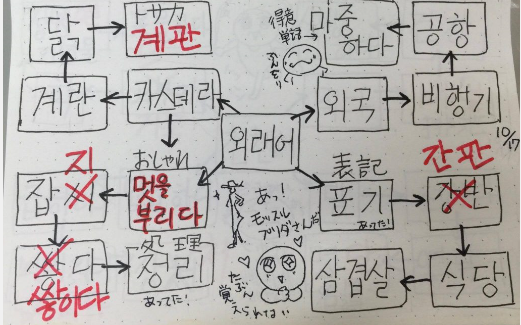 닭
トサカ
계판
得意
戦記→
마중
하다
공항
계란
카스테라
외국
비행기
10/17
외래어
지
잡
おしゃれ
멋을
부리다
あっ！
モッスル
プリダさんだ
表記
표기
あってた！
간판
다
쌓이다
処理
정리
あってた！
たぶん
覚えられない
삼겹살
식당